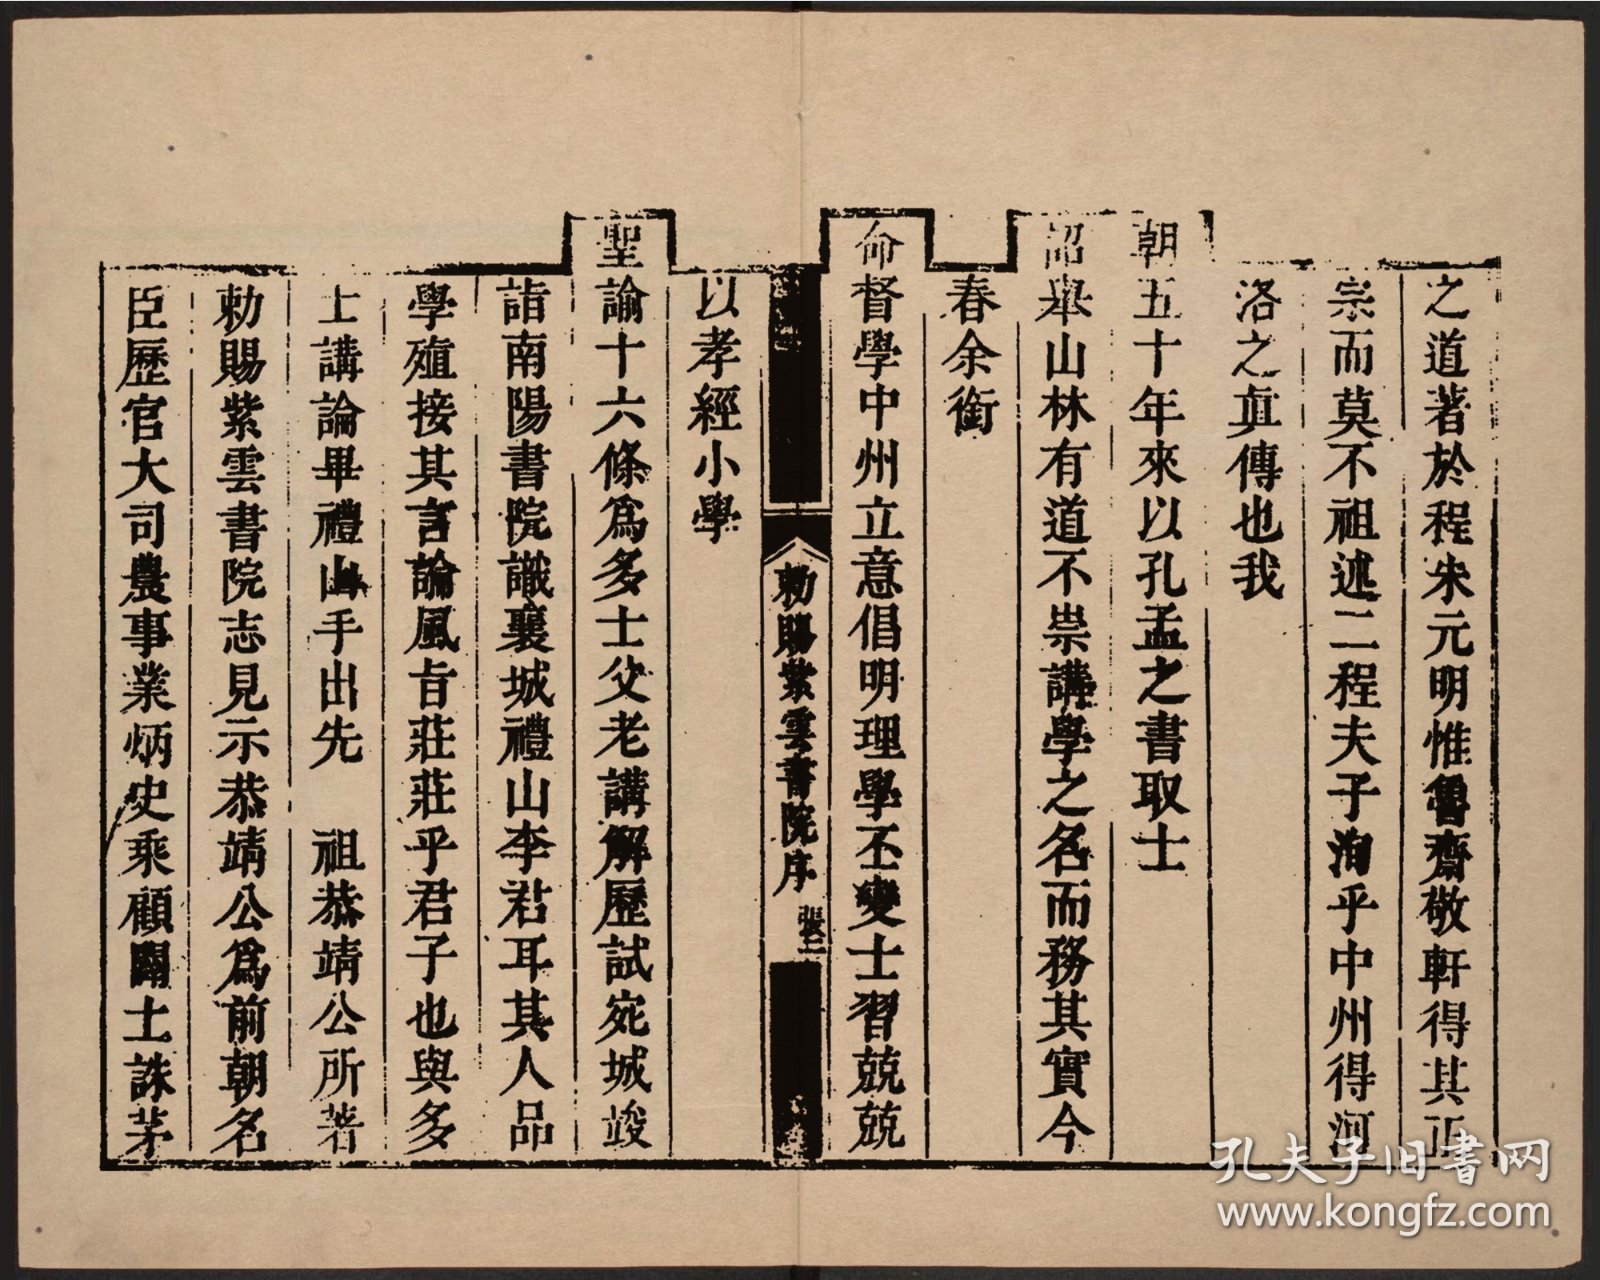 之道著於程朱元明惟魯齋敬軒得其正
宗而莫不祖述二程夫子洵乎中州得河
洛之眞傳也我
朝五十年來以孔孟之書取士
詔舉山林有道不崇講學之名而務其實今
春余銜
命督學中州立意倡明理學丕變士習兢兢
勅賜紫雲書院序
張二
以孝經小學
聖諭十六條爲多士父老講解歷試宛城竣
詣南陽書院識襄城禮山李君耳其人品
學殖接其言論風旨莊莊乎君子也與多
士講論畢禮山手出先 祖恭靖公所著
勅賜紫雲書院志見示恭靖公爲前朝名
臣歷官大司農事業炳史乘顧闢土誅茅
孔夫子旧書网
www.kongfz.com